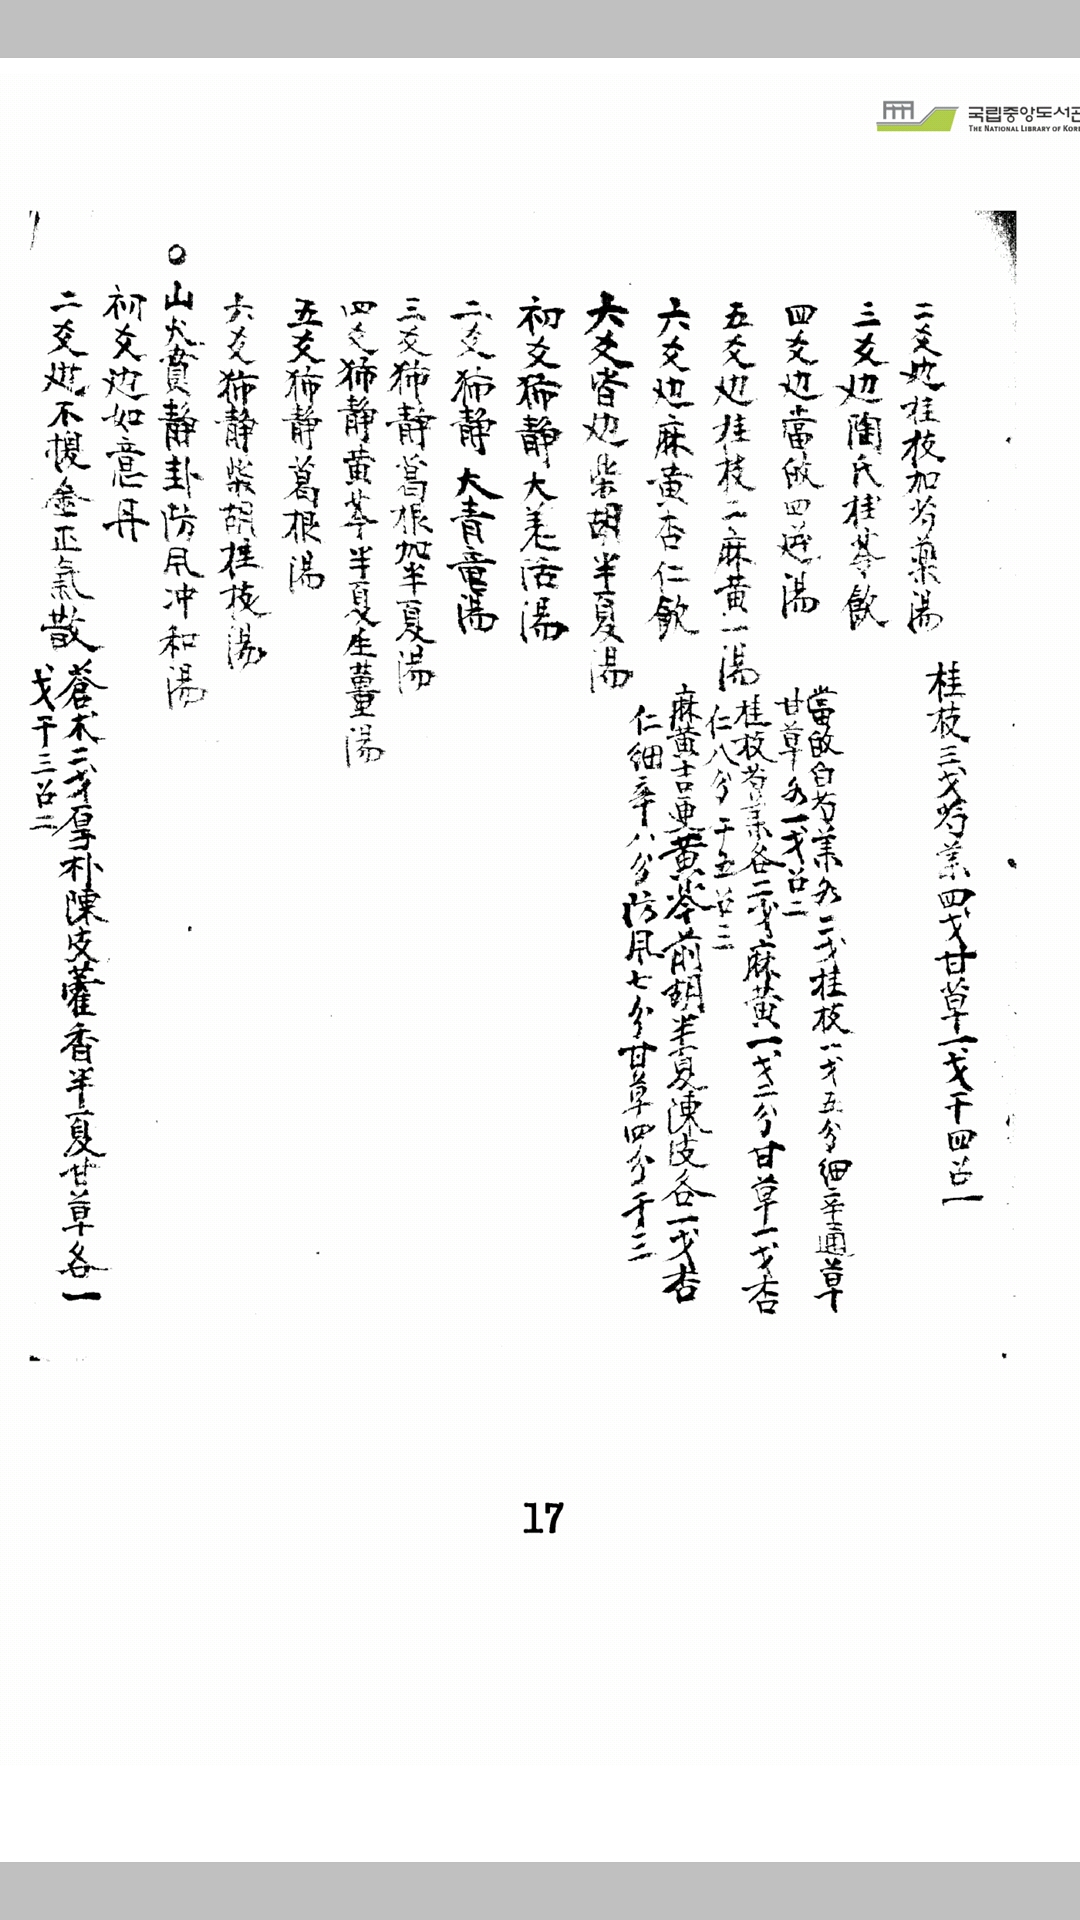 국립중앙도서관
THE NATIONAL LIBRARY OF KORE
二爻边桂枝加芍藥湯
桂枝三戔芍薬四戔甘草一戔干四召一
三爻边陶氏桂苓飮
四爻边當皈四逆湯
當皈白芍薬各二戔桂枝一戔五分細辛通草
甘草各一戔召二
五爻边桂枝二麻黄一湯
桂枝芍薬各二戔麻黄一戔二分甘草一戔杏
仁八分干五召三
六爻边麻黄杏仁飮
麻黄吉更黄芩前胡半夏陳皮各一戔杏
仁細辛八分防风七分甘草四分干三
六爻皆边柴胡半夏湯
初爻獨静大羌活湯
二爻獨静大青竜湯
三爻獨静葛根加半夏湯
四爻獨静黄芩半夏生薑湯
五爻獨静葛根湯
六爻獨静柴胡桂枝湯
○山火賁静卦防风冲和湯
初爻边如意丹
二爻边不換金正氣散
蒼朮二戔厚朴陳皮藿香半夏甘草各一
戔干三召二
17